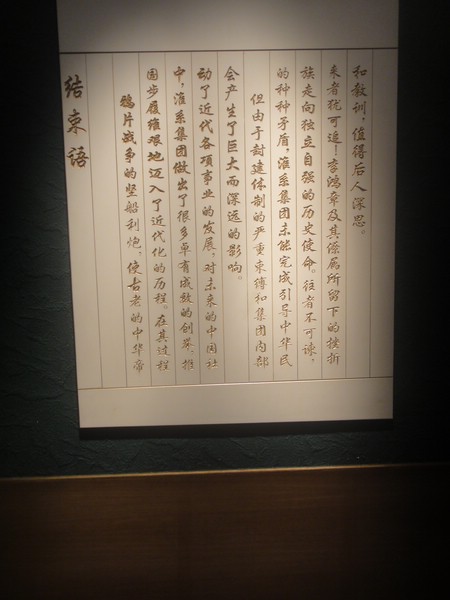 结束语
鸦片战争的坚船利炮,使古老的中华帝
国步履维艰地迈入了近代化的历程,在其过程
中,淮系集团做出了很多卓有成效的创举,推
动了近代各项事业的发展,对未来的中国社
会产生了巨大而深远的影响。
但由于封建体制的严重束缚和集团内部
的种种矛盾,淮系集团未能完成引导中华民
族走向独立自强的历史使命。往者不可谏,
来者犹可追!李鸿章及其僚属所留下的挫折
和教训,值得后人深思。